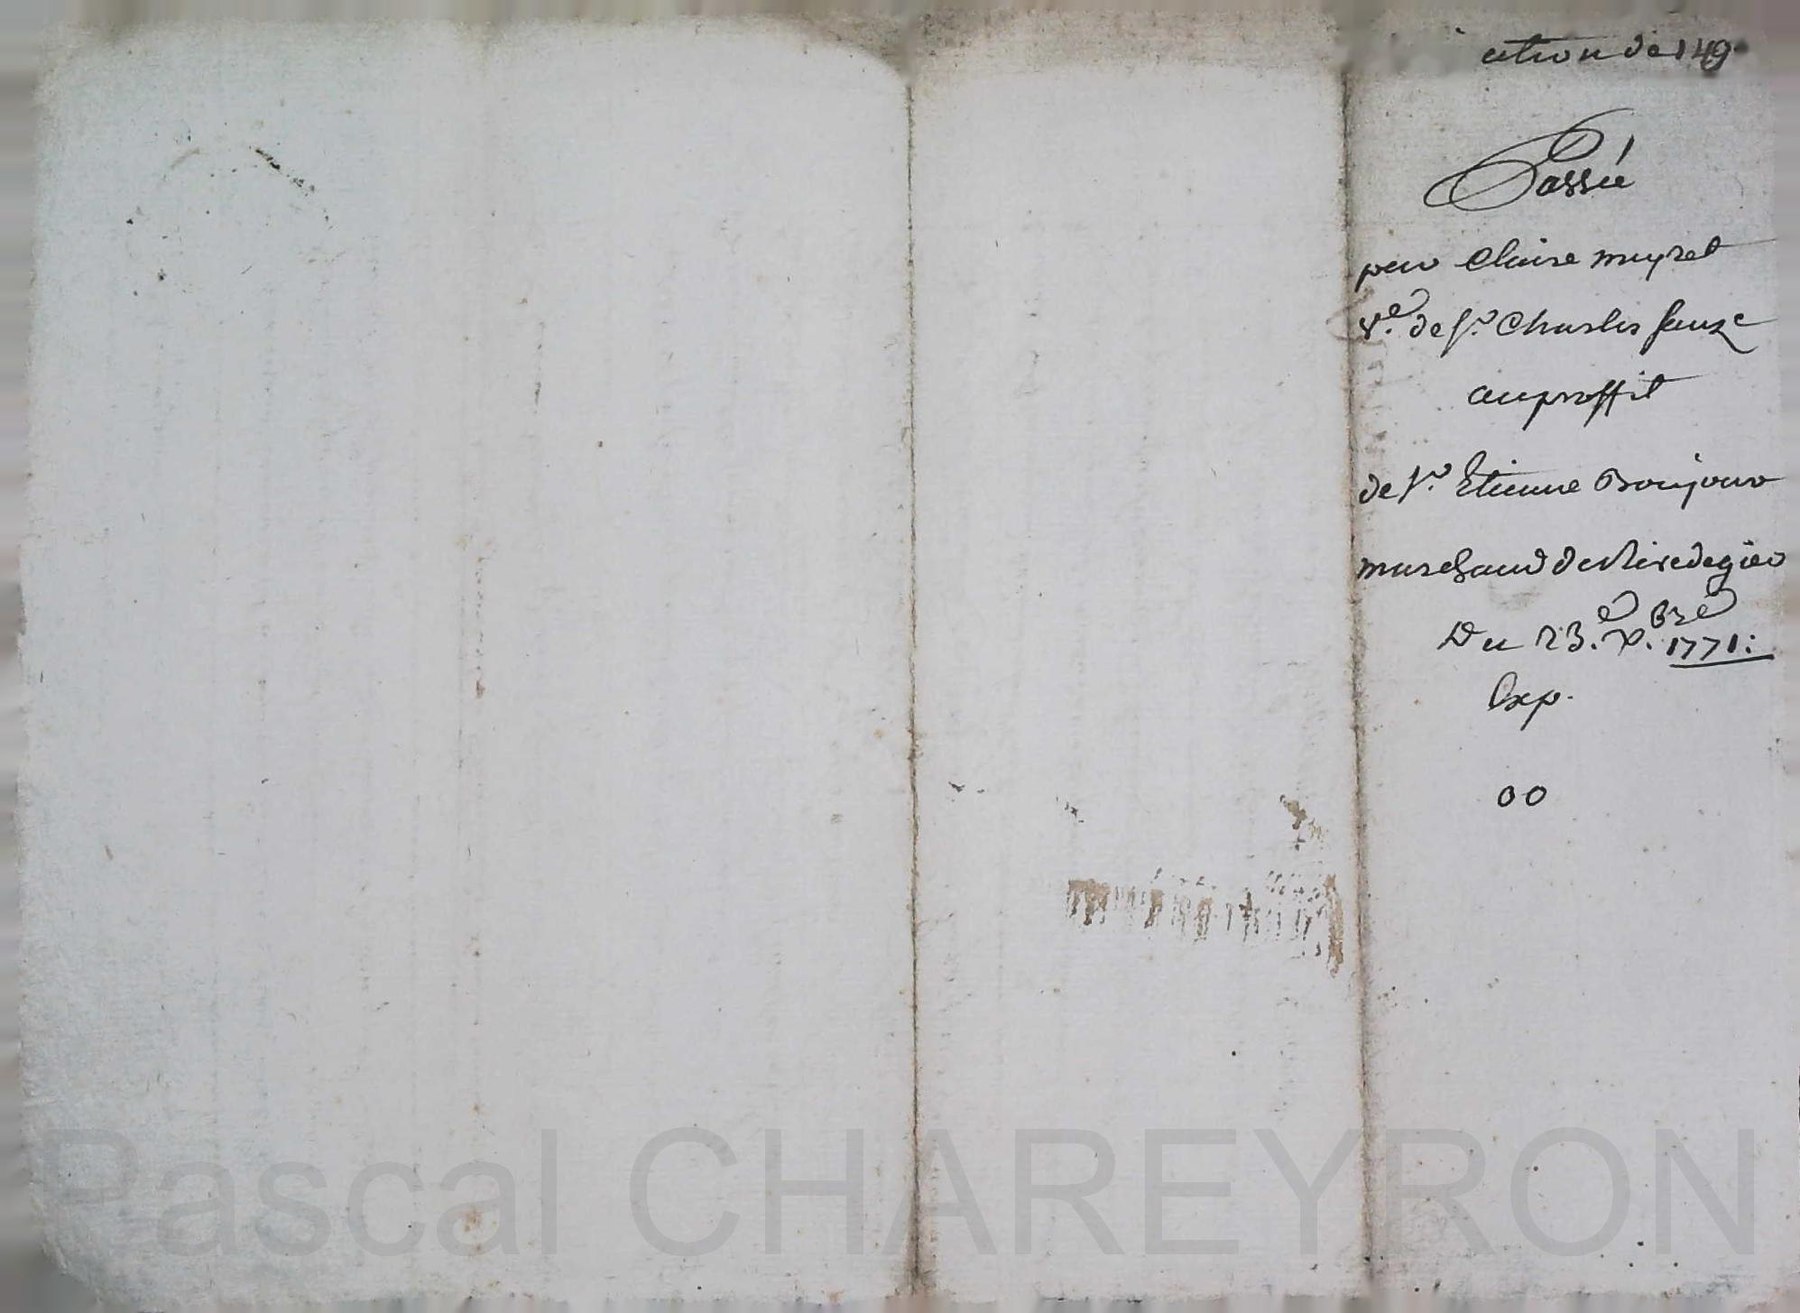 ation de 149
Passée
par Claire meyret
Ve. de Sr. Charles fauze
au proffit
de Sr. Etienne Bonjour
marchand de Rivedegier
Du 23.e Xbre. 1771:
Exp.
00
Pascal CHAREYRON